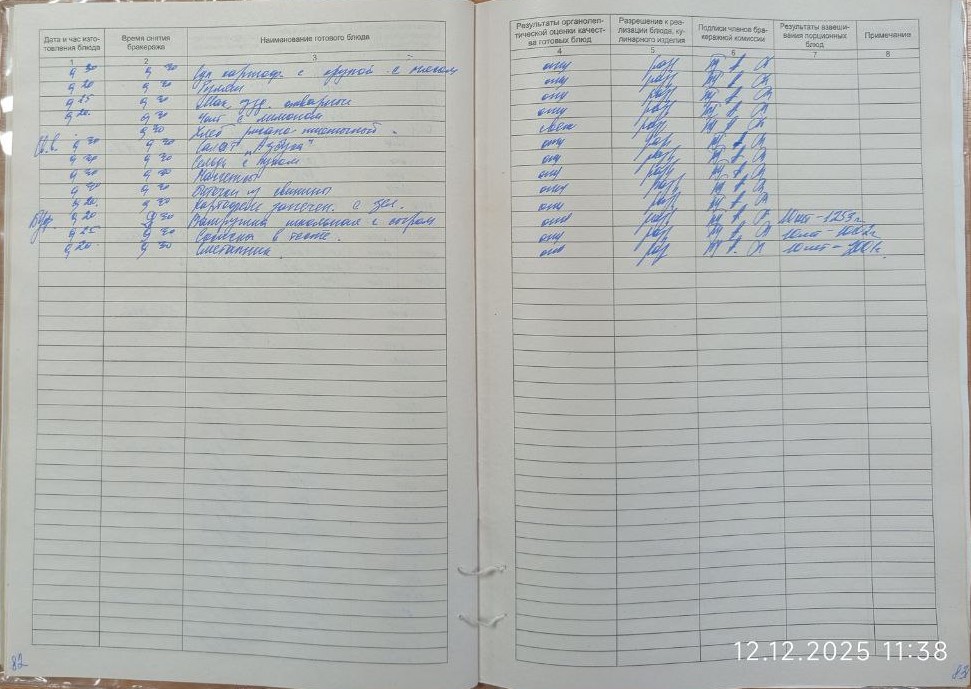 Дата и час изго-
товления блюда
Время снятия
бракеража
Наименование готового блюда
1 2 3
9 30 9 30 Суп картоф. с крупой с мясом
9 20 9 30
9 25 9 30 Мак. изд. отварные
9 20 9 30 Чай с лимоном
9 30 Хлеб ржано-пшеничной.
9 20 9 30 Салат "Азбука"
9 20 9 30 Сельдь с луком
9 30 9 30
9 20 9 30 из свинины
9 20 9 30 Картофель запечен. с зел.
9 20 9 30 Ватрушка школьная с сыром
9 25 9 30 Сосиска в тесте.
9 20 9 30 Сметанник.
82
Результаты органолеп-
тической оценки качест-
ва готовых блюд
Разрешение к реа-
лизации блюда, ку-
линарного изделия
Подписи членов бра-
керажной комиссии
Результаты взвеши-
вания порционных
блюд
Примечание
4 5 6 7 8
отл разр
отл разр
отл разр
отл разр
свеж разр
отл разр
отл разр
отл разр
отл разр
отл разр
отл разр 10 шт - 1253 г.
отл разр 10 шт - 1002 г
отл разр 10 шт -
83
12.12.2025 11:38